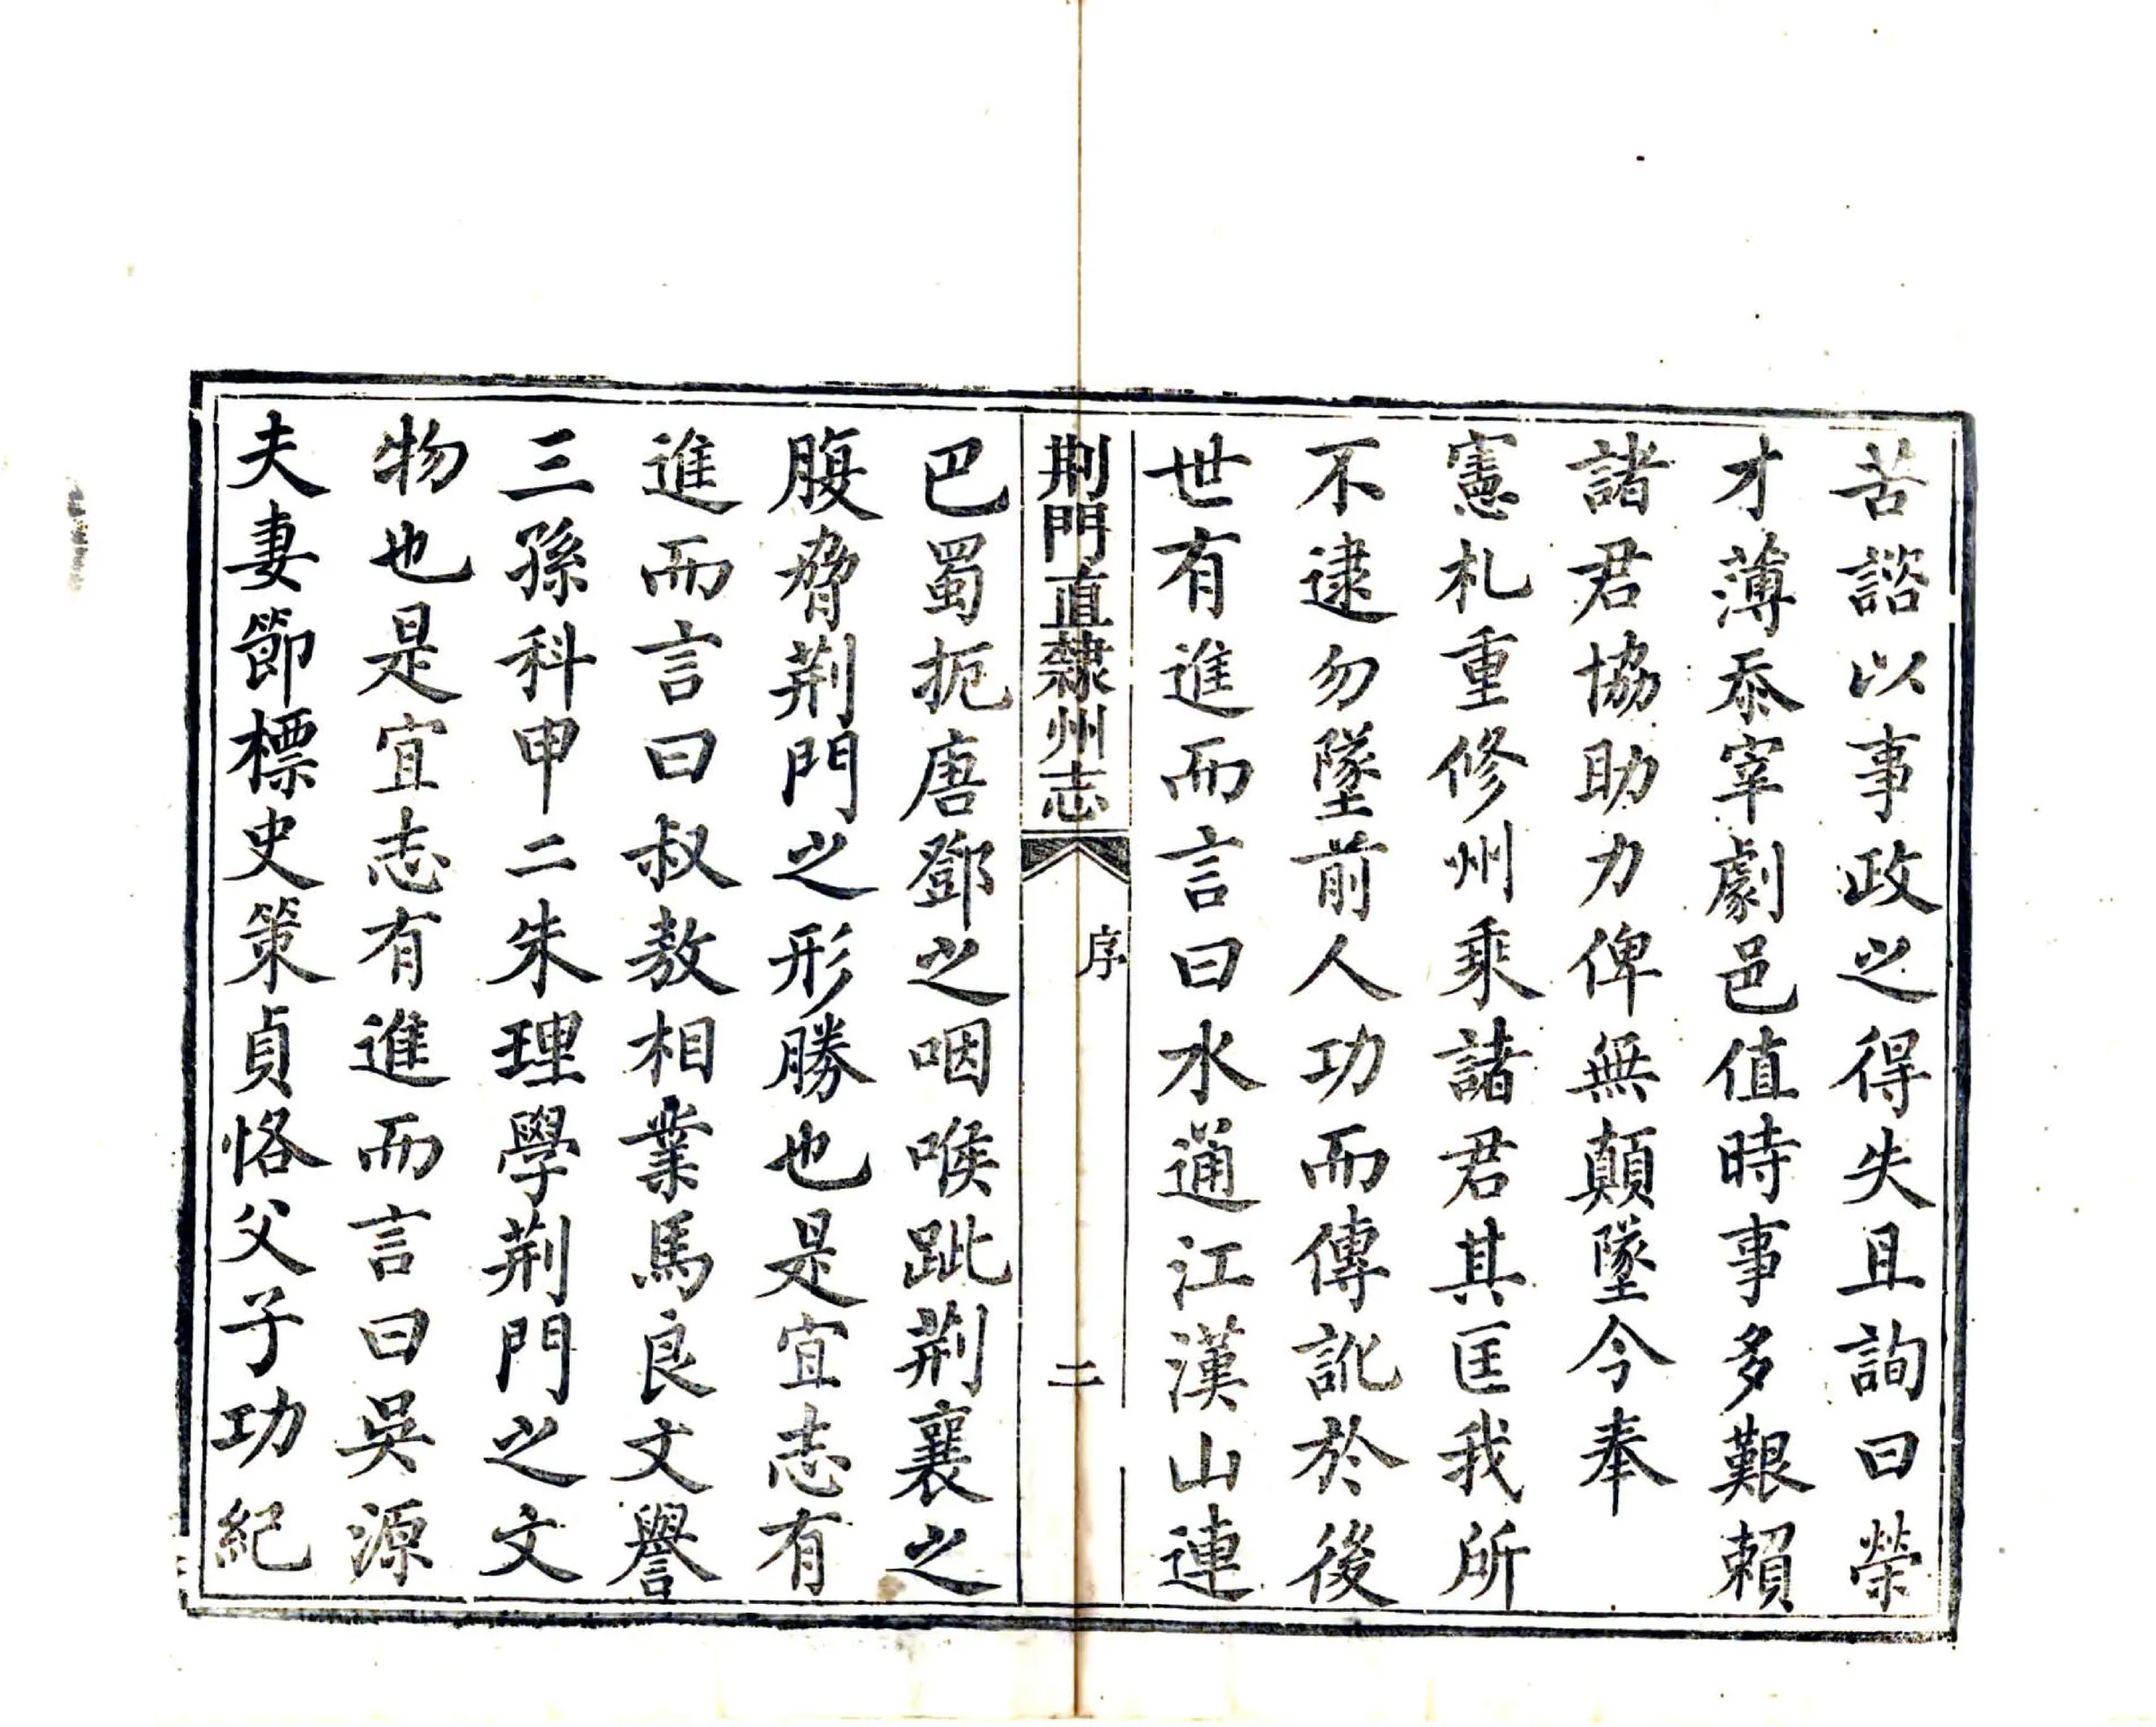 苦諮以事政之得失且詢曰榮
才薄忝宰劇邑值時事多艱賴
諸君協助力俾無顛墜今奉
憲札重修州乘諸君其匡我所
不逮勿墜前人功而傳訛於後
世有進而言曰水通江漢山連
荆門直隸州志
序
二
巴蜀扼唐鄧之咽喉跐荆襄之
腹脅荆門之形勝也是宜志有
進而言曰叔敖相業馬良文譽
三孫科甲二朱理學荆門之文
物也是宜志有進而言曰吳源
夫妻節標史策貞恪父子功紀